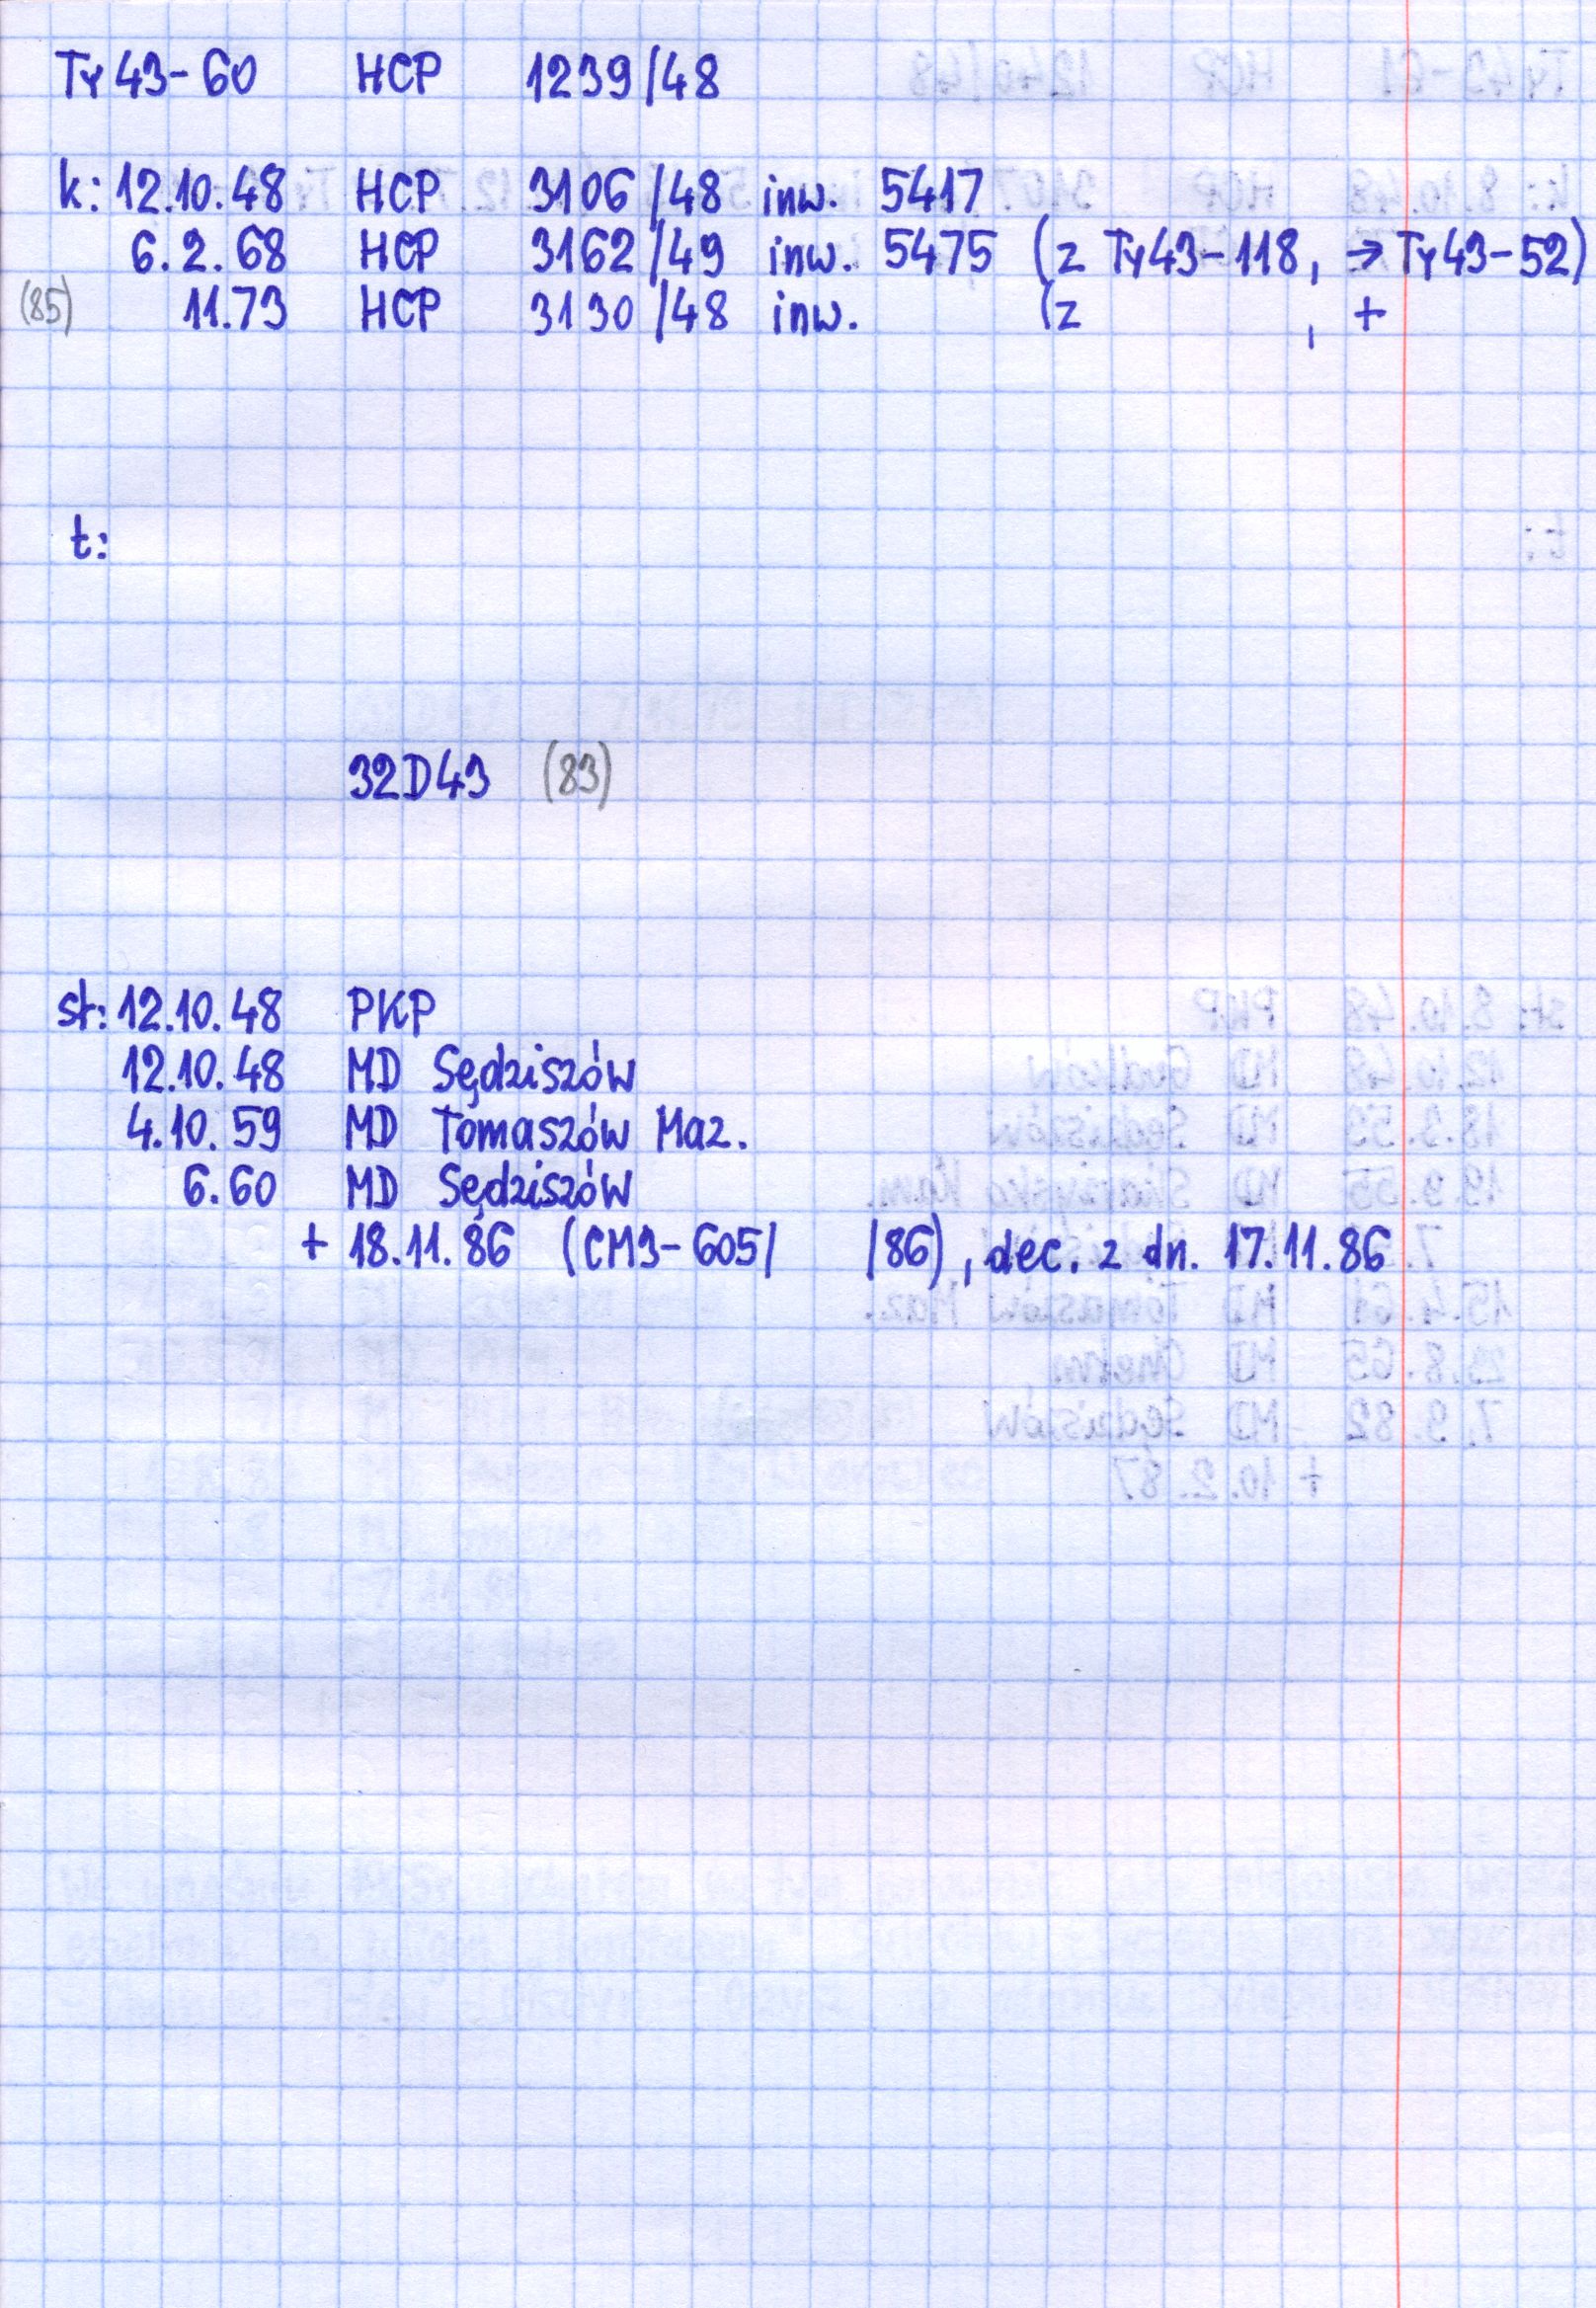 Ty43-60 HCP 1239/48
k: 12.10.48 HCP 3106/48 inw. 5417
6.2.68 HCP 3162/49 inw. 5475 (z Ty43-118, → Ty43-52)
(85) 11.73 HCP 3130/48 inw. (z , +
t:
32D43 (83)
st: 12.10.48 PKP
12.10.48 MD Sędziszów
4.10.59 MD Tomaszów Maz.
6.60 MD Sędziszów
+ 18.11.86 (CM3-605/ /86), dec. z dn. 17.11.86